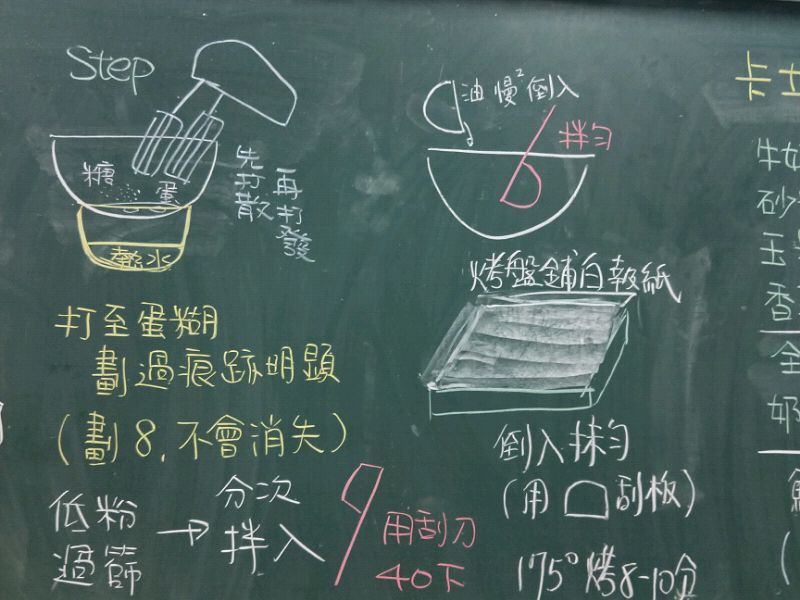 Step
糖 蛋
熱水
先打散
再打發
打至蛋糊
劃過痕跡明顯
(劃8.不會消失)
低粉
過篩
→
分次
拌入
用刮刀
40下
油慢²倒入
拌勻
烤盤鋪白報紙
倒入抹勻
(用 刮板)
175°烤8-10分
卡士
牛奶
砂
玉
香
全
奶